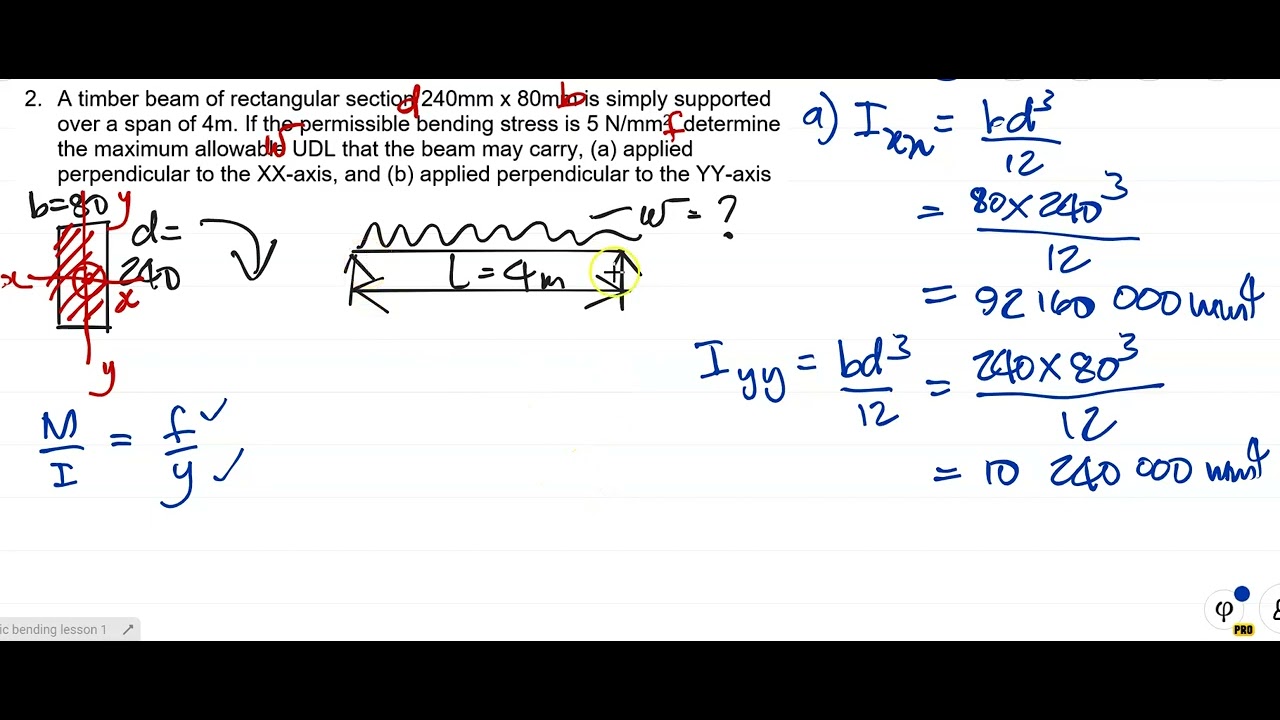 2. A timber beam of rectangular section 240mm x 80mm is simply supported
over a span of 4m. If the permissible bending stress is 5 N/mm², determine
the maximum allowable UDL that the beam may carry, (a) applied
perpendicular to the XX-axis, and (b) applied perpendicular to the YY-axis
d b
f
w
b=80 y
d=
240
x x
y
w = ?
L = 4m
M/I = f/y
a) Ixx = bd³/12
= 80×240³/12
= 92 160 000 mm⁴
Iyy = bd³/12 = 240×80³/12
= 10 240 000 mm⁴
ic bending lesson 1
φ
PRO